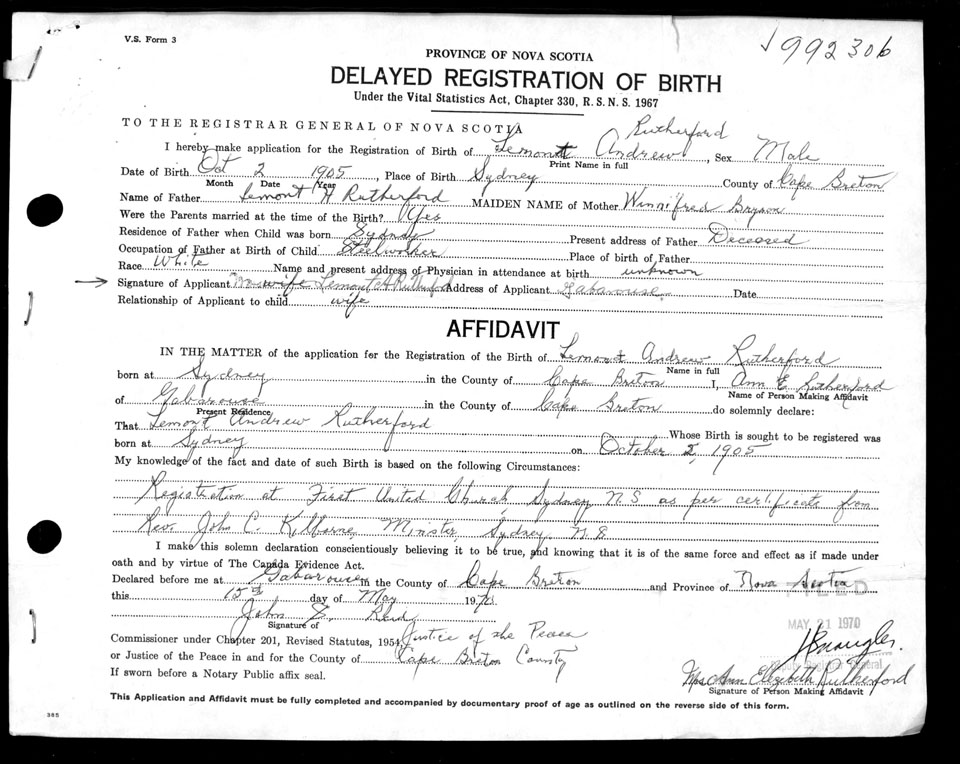 V.S. Form 3
√992306
PROVINCE OF NOVA SCOTIA
DELAYED REGISTRATION OF BIRTH
Under the Vital Statistics Act, Chapter 330, R. S. N. S. 1967
TO THE REGISTRAR GENERAL OF NOVA SCOTIA
Rutherford
I hereby make application for the Registration of Birth of Lemont Andrew, Sex Male
Print Name in full
Date of Birth Oct 2 1905, Place of Birth Sydney County of Cape Breton
Month Date Year
Name of Father Lemont H Rutherford MAIDEN NAME of Mother Winnifred Bryson
Were the Parents married at the time of the Birth? Yes
Residence of Father when Child was born Sydney Present address of Father Deceased
Occupation of Father at Birth of Child Steelworker Place of birth of Father
Race White Name and present address of Physician in attendance at birth unknown
Signature of Applicant wife Lemont A Rutherford Address of Applicant Gabarouse Date
Relationship of Applicant to child wife
AFFIDAVIT
IN THE MATTER of the application for the Registration of the Birth of Lemont Andrew Rutherford
Name in full
born at Sydney in the County of Cape Breton I, Ann E Rutherford
Name of Person Making Affidavit
of Gabarouse in the County of Cape Breton do solemnly declare:
Present Residence
That Lemont Andrew Rutherford Whose Birth is sought to be registered was
born at Sydney on October 2, 1905
My knowledge of the fact and date of such Birth is based on the following Circumstances:
Registration at First United Church, Sydney N.S as per certificate from
Rev. John C. Minster, Sydney N.S
I make this solemn declaration conscientiously believing it to be true, and knowing that it is of the same force and effect as if made under
oath and by virtue of The Canada Evidence Act.
Declared before me at Gabarouse in the County of Cape Breton and Province of Nova Scotia
FILED
this 15th day of May 1970
MAY 21 1970
John E. Reid
Signature of
Commissioner under Chapter 201, Revised Statutes, 1954, Justice of the Peace
or Justice of the Peace in and for the County of Cape Breton County
Deputy Registrar General
If sworn before a Notary Public affix seal.
Mrs Ann Elizabeth Rutherford
Signature of Person Making Affidavit
This Application and Affidavit must be fully completed and accompanied by documentary proof of age as outlined on the reverse side of this form.
385